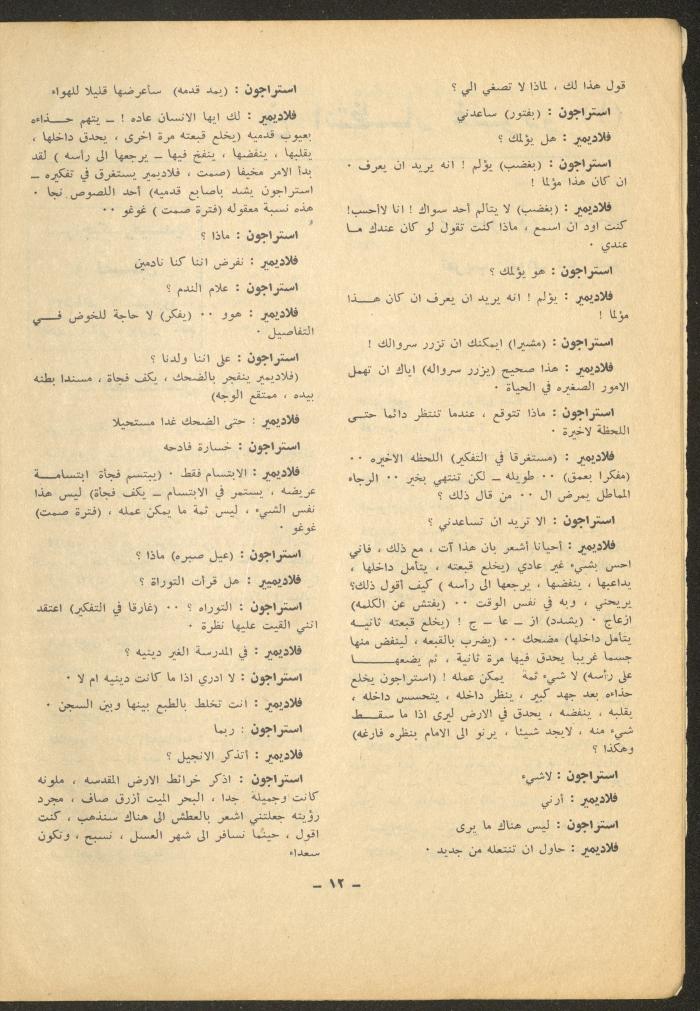 قول هذا لك ، لماذا لا تصغي الي ؟
استراجون : (بفتور) ساعدني
فلاديمير : هل يؤلمك ؟
استراجون : (بغضب) يؤلم ! انه يريد ان يعرف ٠
ان كان هذا مؤلما !
فلاديمير : (بغضب) لا يتألم أحد سواك ! انا لاأحسب!
كنت اود ان اسمع ، ماذا كنت تقول لو كان عندك مـا
عندي ٠
استراجون : هو يؤلمك ؟
فلاديمير : يؤلم ! انه يريد ان يعرف ان كان هـــذا
مؤلما !
استراجون : (مشيرا) ايمكنك ان تزرر سروالك !
فلاديمير : هذا صحيح (يزرر سرواله) اياك ان تهمل
الامور الصغيره في الحياة ٠
استراجون : ماذا تتوقع ، عندما تنتظر دائما حتــى
اللحظة لاخيرة ٠
فلاديمير : (مستغرقا في التفكير) اللحظه الاخيره ٠٠
(مفكرا بعمق) ٠٠ طويله ـ لكن تنتهي بخير ٠٠ الرجاء
المماطل يمرض ال ٠٠ من قال ذلك ؟
استراجون : الا تريد ان تساعدني ؟
فلاديمير : أحيانا أشعر بان هذا آت ، مع ذلك ، فاني
احس بشيء غير عادي (يخلع قبعته ، يتأمل داخلها ،
يداعبها ، ينفضها ، يرجعها الى رأسه ) كيف أقول ذلك؟
يريحني ، وبه في نفس الوقت ٠٠ (يفتش عن الكلمه)
ازعاج ٠ (يشدد) از ـ عا ـ ج ! (يخلع قبعته ثانيـه
يتأمل داخلها) مضحك ٠٠ (يضرب بالقبعه ، لينفض منها
جسما غريبا يحدق فيها مرة ثانية ، ثم يضعهـــــا
على رأسه) لا شيء ثمة يمكن عمله ! (استراجون يخلع
حذاءه بعد جهد كبير ، ينظر داخله ، يتحسس داخله ،
يقلبه ، ينفضه ، يحدق في الارض ليرى اذا ما سقـــط
شيء منه ، لايجد شيئا ، يرنو الى الامام بنظره فارغه)
وهكذا ؟
استراجون : لاشيء
فلاديمير : أرني
استراجون : ليس هناك ما يرى
فلاديمير : حاول ان تنتعله من جديد ٠
استراجون : (يمد قدمه) سأعرضها قليلا للهواء
فلاديمير : لك ايها الانسان عاده ! ـ يتهم حـــذاءه
بعيوب قدميه (يخلع قبعته مرة اخرى ، يحدق داخلها ،
يقلبها ، ينفضها ، ينفخ فيها ـ يرجعها الى رأسه ) لقد
بدأ الامر مخيفا (صمت ، فلاديمير يستغرق في تفكيره ـ
استراجون يشد باصابع قدميه) أحد اللصوص نجا ٠
هذه نسبة معقوله (فترة صمت ) غوغو ٠٠
استراجون : ماذا ؟
فلاديمير : نفرض اننا كنا نادمين
استراجون : علام الندم ؟
فلاديمير : هوو ٠٠ (يفكر) لا حاجة للخوض فـــي
التفاصيل ٠
استراجون : على اننا ولدنا ؟
(فلاديمير ينفجر بالضحك ، يكف فجأة ، مسندا بطنه
بيده ، ممتقع الوجه)
فلاديمير : حتى الضحك غدا مستحيلا
استراجون : خسارة فادحه
فلاديمير : الابتسام فقط ٠ (يبتسم فجأة ابتسامـــة
عريضه ، يستمر في الابتسام ـ يكف فجأة) ليس هذا
نفس الشيء ، ليس ثمة ما يمكن عمله ، (فترة صمت)
غوغو ٠
استراجون : (عيل صبره) ماذا ؟
فلاديميير : هل قرأت التوراة ؟
استراجون : التوراه ؟ ٠٠ (غارقا في التفكير) اعتقد
انني القيت عليها نظرة ٠
فلاديمير : في المدرسة الغير دينيه ؟
استراجون : لا ادري اذا ما كانت دينيه ام لا ٠
فلاديمير : انت تخلط بالطبع بينها وبين السجن ٠
استراجون : ربما
فلاديمير : أتذكر الانجيل ؟
استراجون : اذكر خرائط الارض المقدسه ، ملونه
كانت وجميلة جدا ، البحر الميت أزرق صاف ، مجرد
رؤيته جعلتني اشعر بالعطش الى هناك سنذهب ، كنت
اقول ، حيثما نسافر الى شهر العسل ، نسبح ، ونكون
سعداء
ـ ١٢ ـ